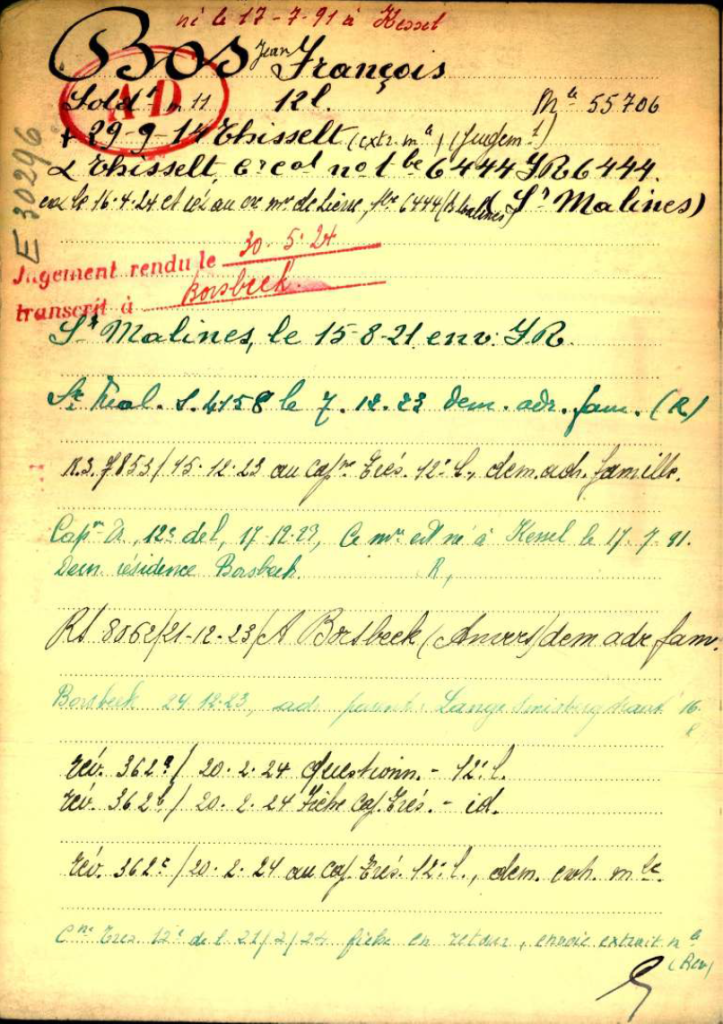 né le 17-7-91 à Kessel
Bos Jean François
AD
Soldt m. 11 12 l. Mle 55706
+ 29-9-14 Thisselt (extr. mle) (Jugemt)
à Thisselt, Cerceal no 1 be 6444 JR 6444.
ex. le 16-4-24 et au mre de 6444 (Sr Malines)
E 30296
Jugement rendu le 30-5-24
transcrit à Borsbeek.
Sr Malines, le 15-8-21 env. JR
St. S. 4158 le 7.12.23 dem. adr. fam. (R)
R.S. 7853/15-12-23 au Capne Trés. 12e l., dem. adr. famille.
Capne Tr, 12e del, 17-12-23, Ce mre est né à Kessel le 17.7.91.
Dern résidence Borsbeek. R,
RS 8062/21-12-23/A Borsbeek (Anvers) dem adr fam.
Borsbeek 24.12.23, adr parent: Lange 16
R
rév. 362a/ 20-2-24 Questionn. - 12e l.
rév. 362b/ 20-2-24 Fiche Cap. Trés. - id.
rév. 362c/20-2-24 au Cap. Trés. 12e l., dem. exh. mle.
Cne Tres 12e de l 21/2/24 fiche en retour, envoie extrait mle
(Rév)